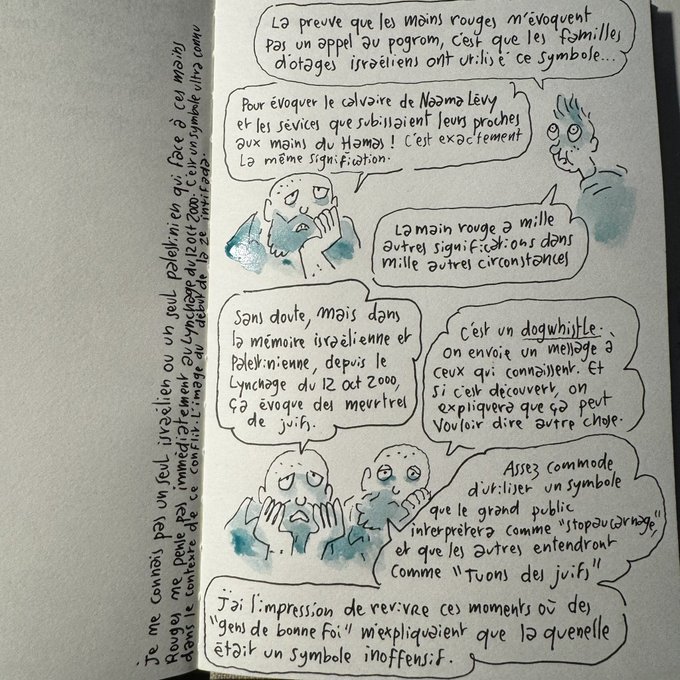 La preuve que les mains rouges n'évoquent
pas un appel au pogrom, c'est que les familles
d'otages israéliens ont utilisé ce symbole...
Pour évoquer le calvaire de Naama Lévy
et les sévices que subissaient leurs proches
aux mains du Hamas ! C'est exactement
la même signification.
La main rouge a mille
autres significations dans
mille autres circonstances
Sans doute, mais dans
la mémoire israélienne et
Palestinienne, depuis le
Lynchage du 12 oct 2000,
ça évoque des meurtres
de juifs.
C'est un dogwhistle.
On envoie un message à
ceux qui connaissent. Et
si c'est découvert, on
expliquera que ça peut
vouloir dire autre chose.
Assez commode
d'utiliser un symbole
que le grand public
interprétera comme "stop au carnage",
et que les autres entendront
comme "Tuons des juifs"
J'ai l'impression de revivre ces moments où des
"gens de bonne foi" m'expliquaient que la quenelle
était un symbole inoffensif.
Je me connais pas un seul israélien ou un seul palestinien qui face à ces mains
Rouges me pense pas immédiatement au Lynchage du 12 oct 2000. C'est un symbole ultra connu
dans le contexte de ce conflit. L'image du début de la 2e intifada.